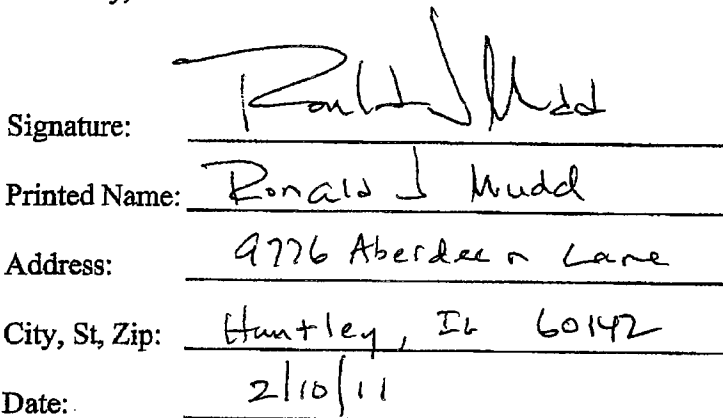 Signature: Ronald J Mudd
Printed Name: Ronald J Mudd
Address: 9776 Aberdeen Lane
City, St, Zip: Huntley, IL 60142
Date: 2/10/11